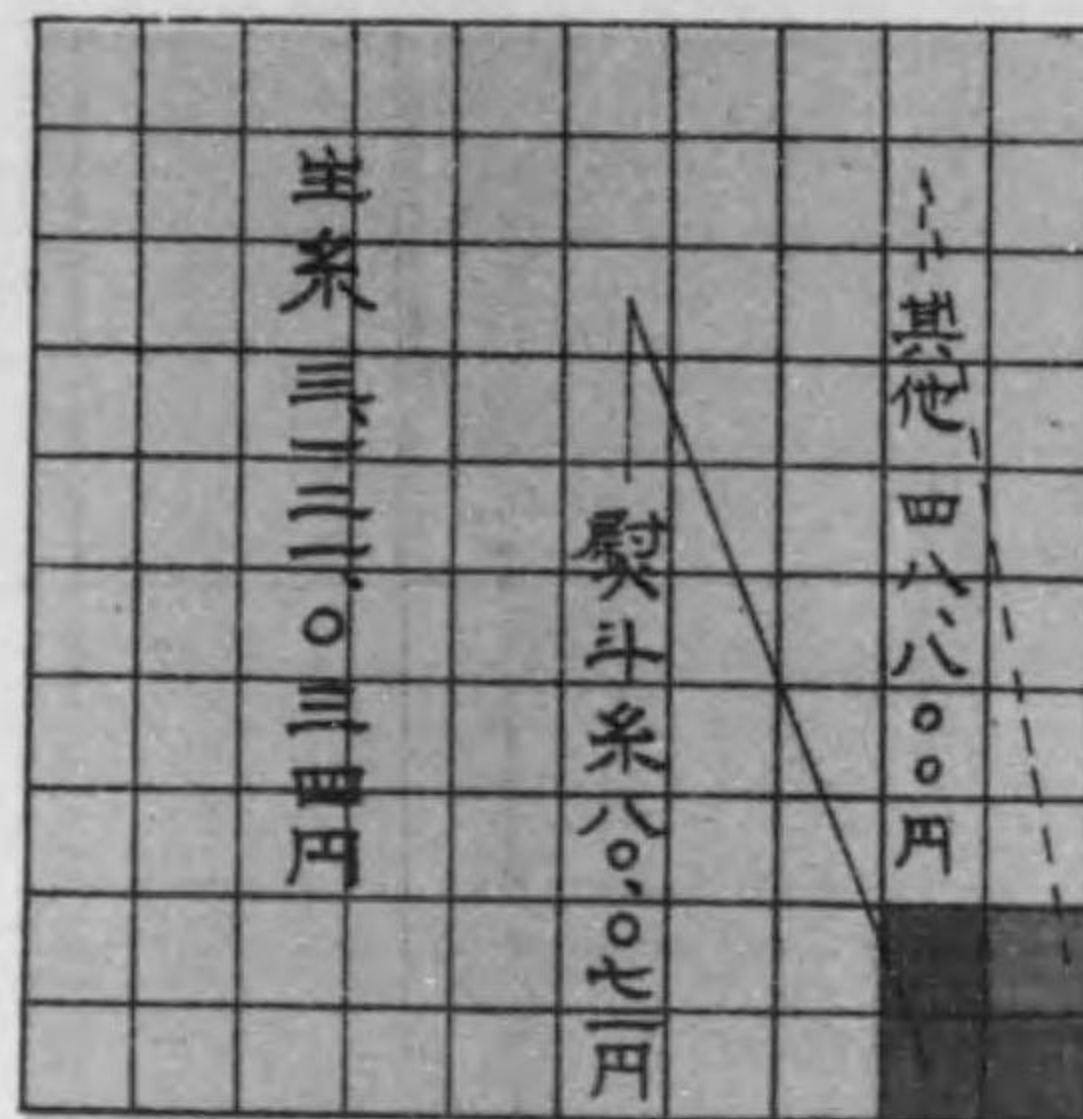 其他 四八、八〇〇円
熨斗糸八〇、〇七一円
生糸 三、一二一、〇三四円